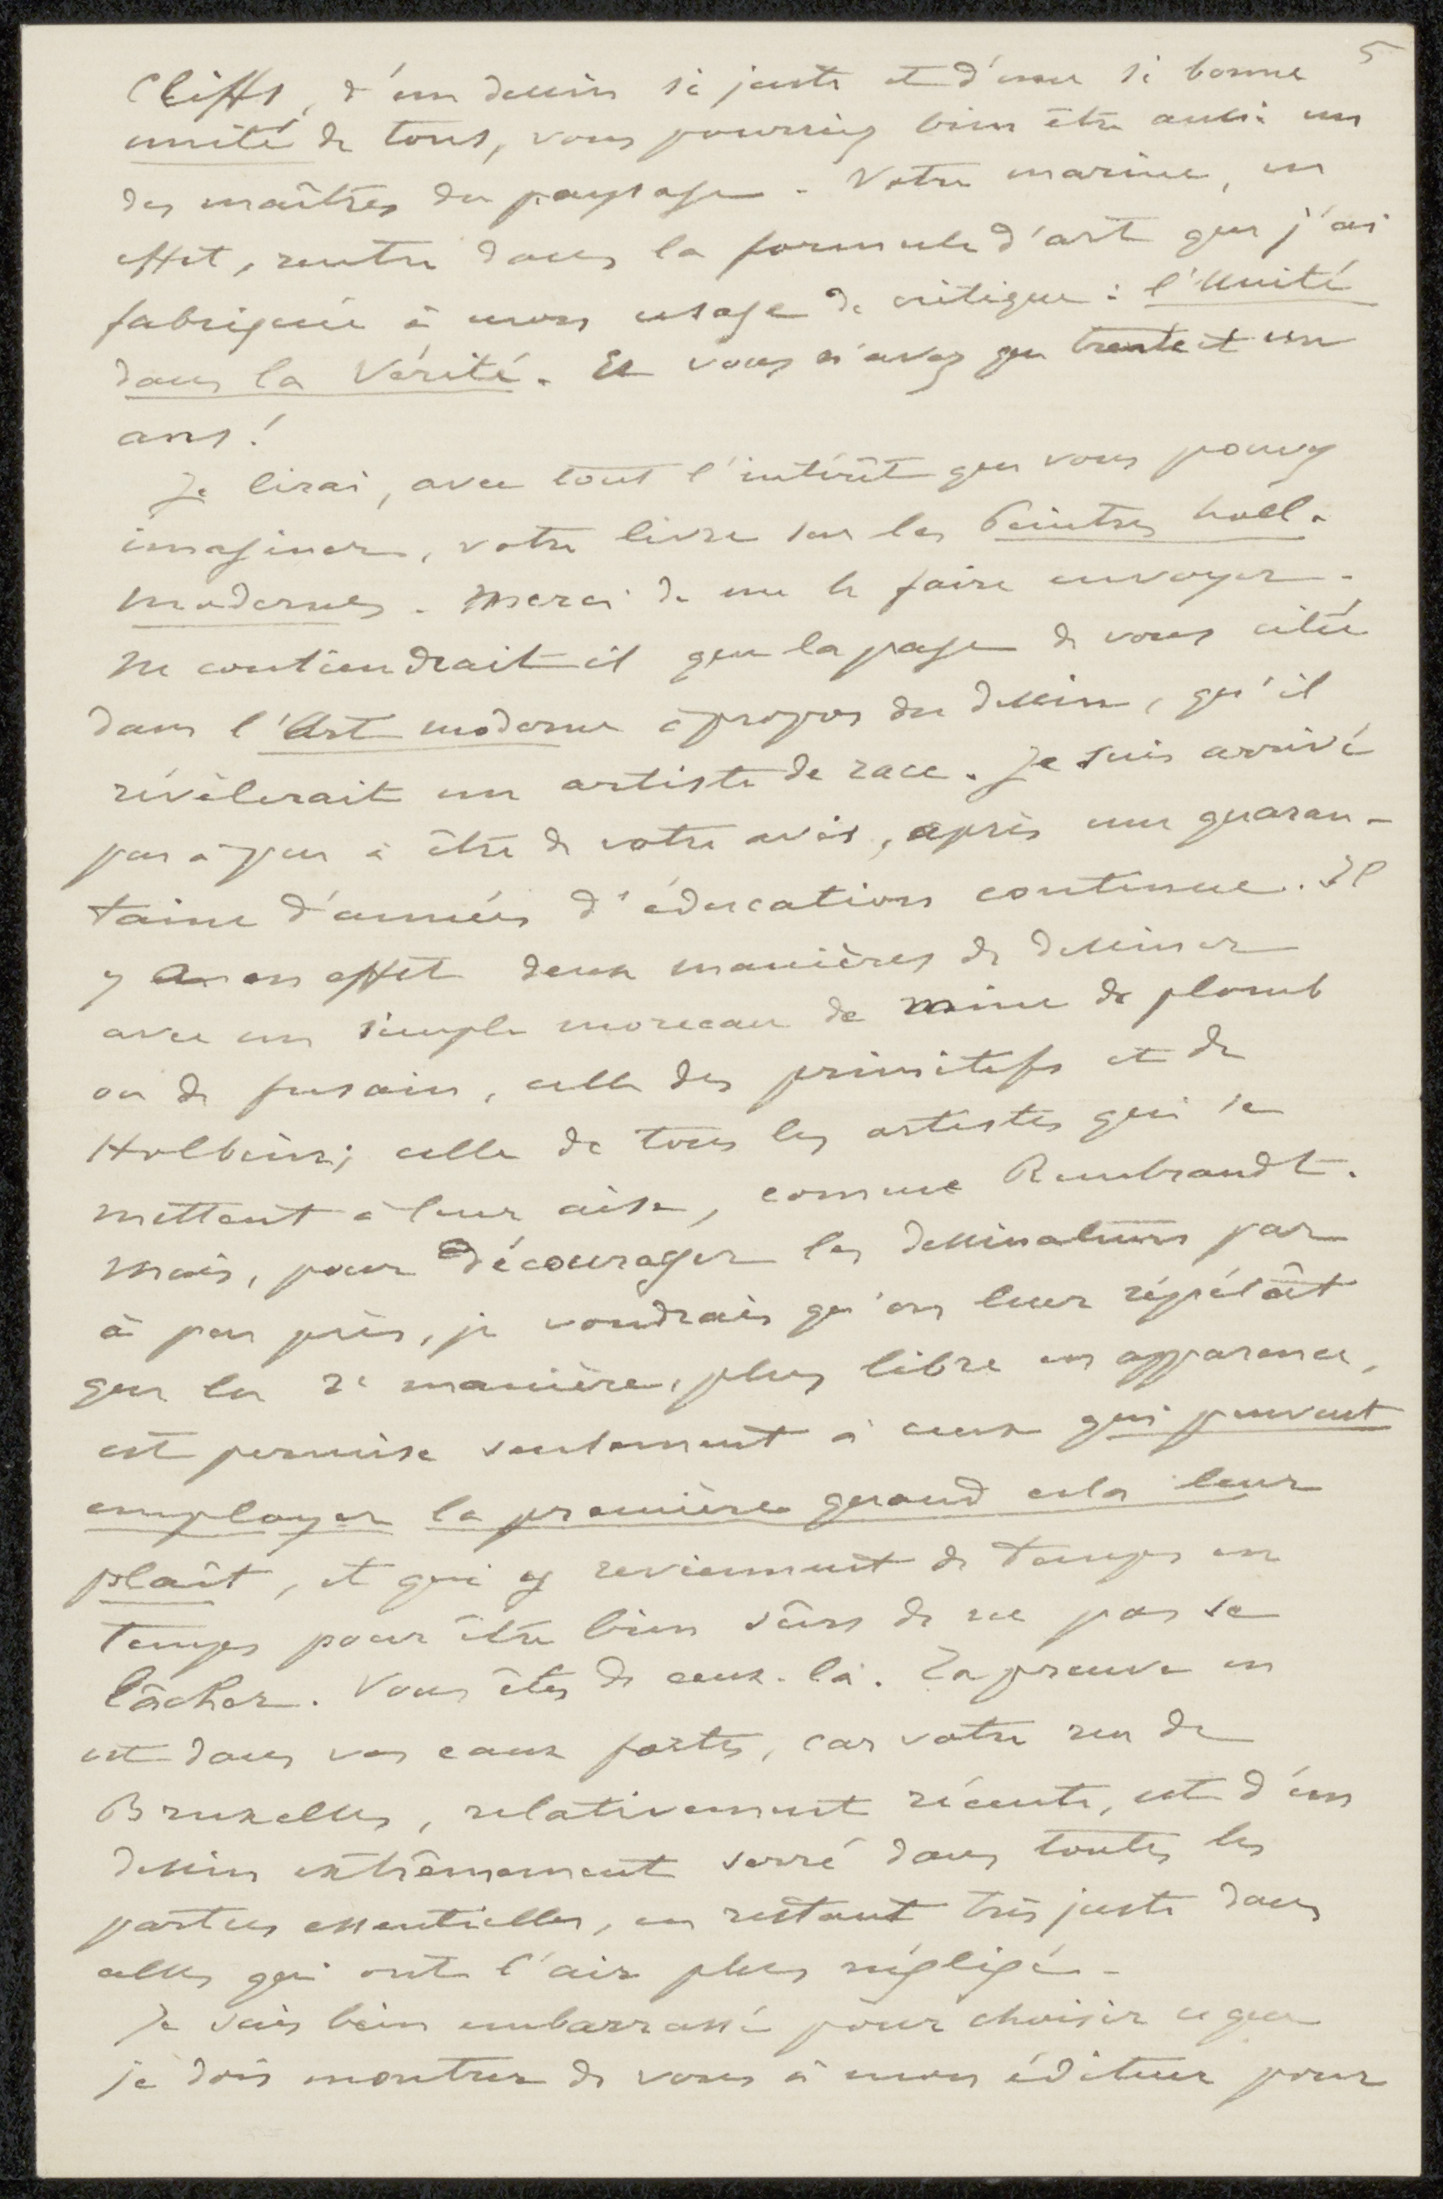 5
Cliffs, d'un dessin si juste et d'une si bonne
unité de tons, vous pourriez bien être aussi un
des maîtres du paysage. Votre marine, en
effet, rentre dans la formule d'art que j'ai
fabriquée à mon usage de critique : l'Unité
dans la Vérité. Et vous n'avez que trente et un
ans !
Je lirai, avec tout l'intérêt que vous pouvez
imaginer, votre livre sur les Peintres holl.
modernes. Merci de me le faire envoyer.
Ne contiendrait-il que la page de vous citée
dans l'Art moderne à propos du dessin, qu'il
révèlerait un artiste de race. Je suis arrivé
peu à peu à être de votre avis, après une quaran-
taine d'années d'éducation continue. Il
y a en effet deux manières de dessiner
avec un simple morceau de mine de plomb
ou de fusain, celle des primitifs et de
Holbein; celle de tous les artistes qui se
mettent à leur aise, comme Rembrandt.
Mais, pour décourager les dessinateurs par
à peu près, je voudrais qu'on leur répétât
que la 2e manière, plus libre en apparence,
est permise seulement à ceux qui peuvent
employer la première quand cela leur
plaît, et qui y reviennent de temps en
temps pour être bien sûrs de ne pas se
lâcher. Vous êtes de ceux-là. La preuve en
est dans vos eaux fortes, car votre rue de
Bruxelles, relativement récente, est d'un
dessin extrêmement serré dans toutes les
parties essentielles, en restant très juste dans
celles qui ont l'air plus négligé.
Je suis bien embarrassé pour choisir ce que
je dois montrer de vous à mon éditeur pour